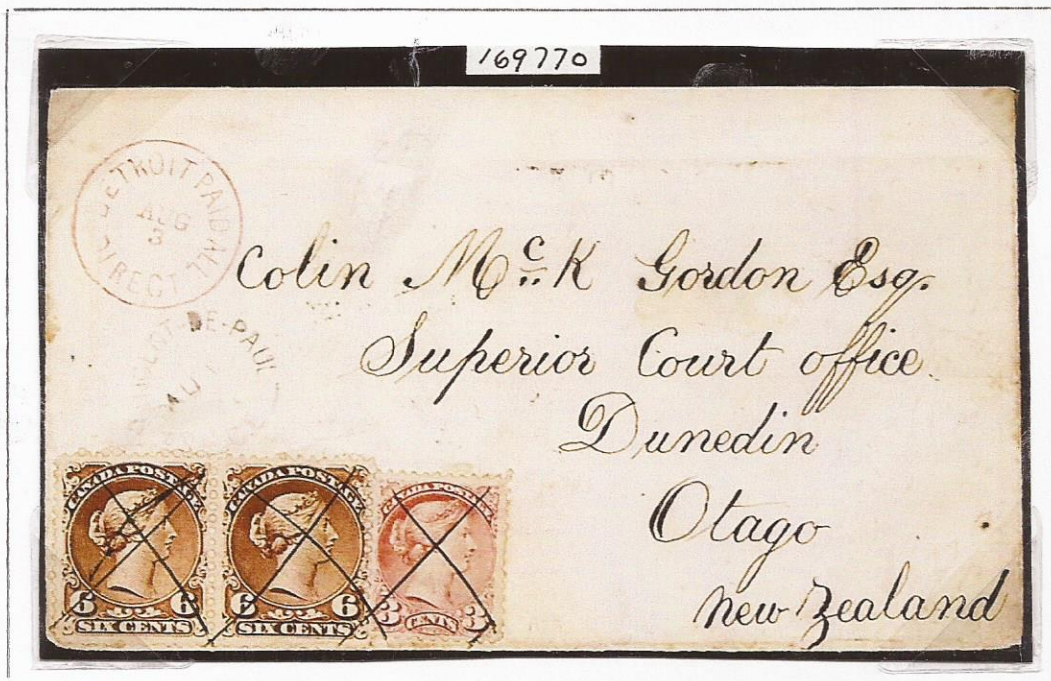 169770
DETROIT PAID ALL
AUG
DIRECT
Colin Mc. K Gordon Esq.
Superior Court office
Dunedin
Otago
New Zealand
DE-PAUL
CANADA POSTAGE
6 6
SIX CENTS
CANADA POSTAGE
6 6
SIX CENTS
CANADA POSTAGE
3 3
CENTS